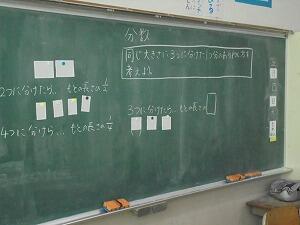 分数
同じ大きさに3つに分けた1つ分の表し方を
考えよう
2つに分けたら… もとの長さの1/2
4つに分けたら… もとの長さの1/4
3つに分けたら… もとの長さの